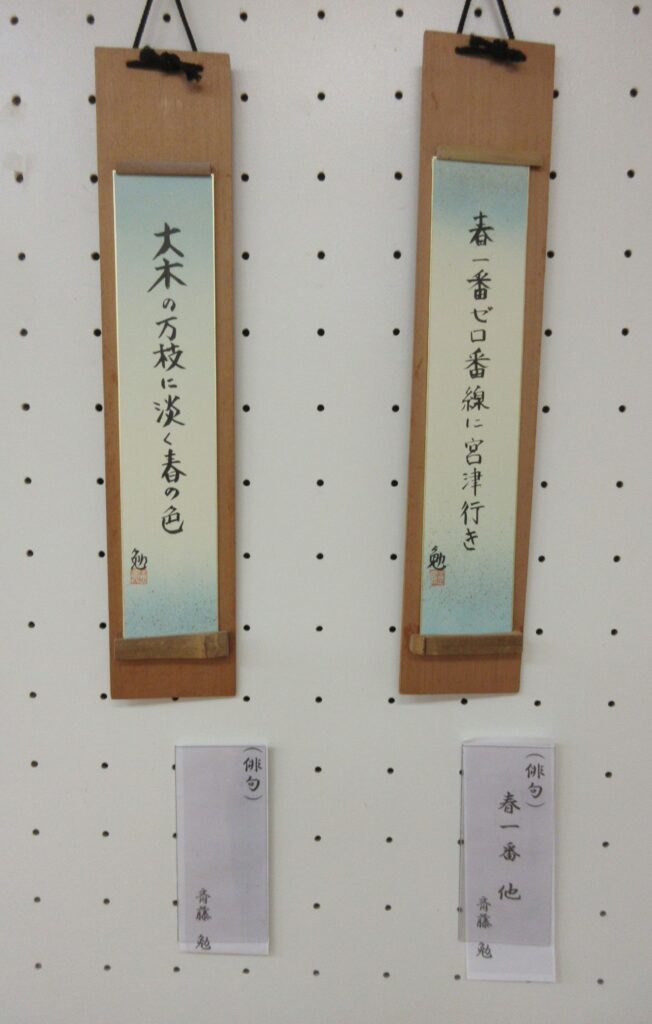 春一番ゼロ番線に宮津行き
勉
大木の万枝に淡く春の色
勉
(俳句)
春一番 他
斉藤 勉
(俳句)
斉藤 勉